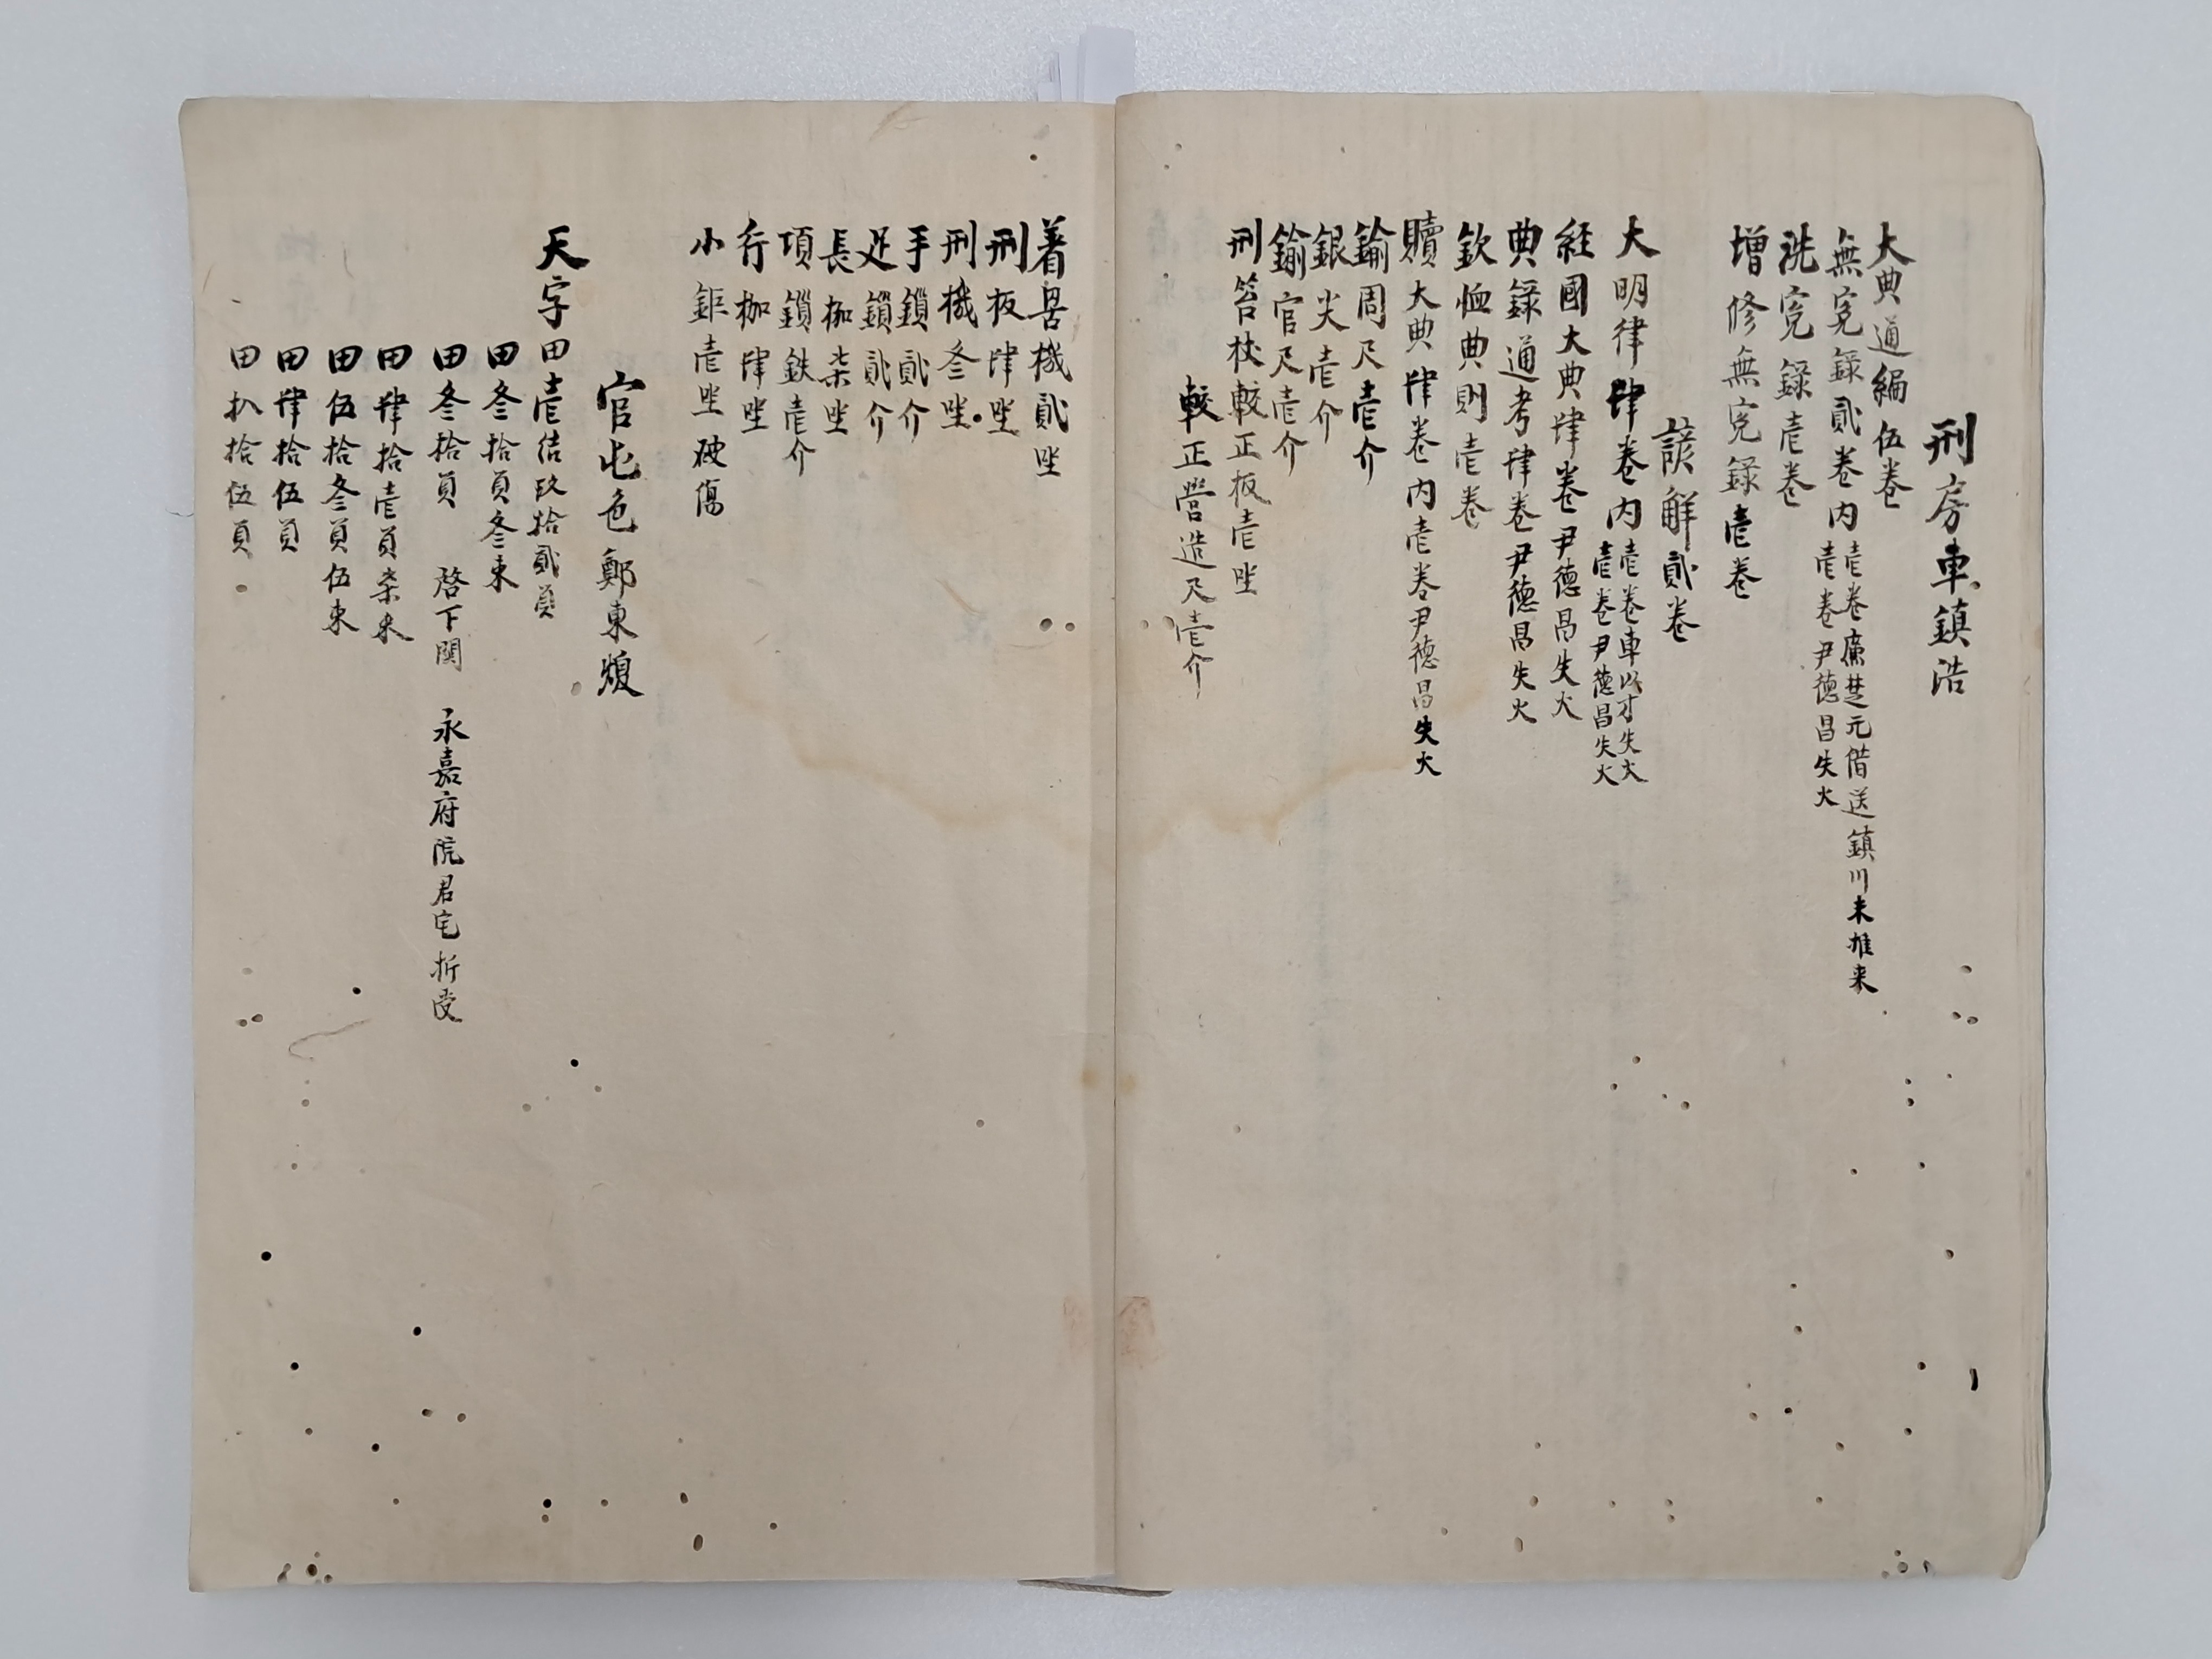 刑房車鎮浩
大典通編伍卷
無寃錄貳卷内壹卷廉楚元借送鎮川未推来
壹卷尹德昌失火
洗寃錄壹卷
增修無寃錄壹卷
諺解貳卷
大明律肆卷内壹卷車以才失火
壹卷尹德昌失火
経國大典肆卷尹德昌失火
典錄通考肆卷尹德昌失火
欽恤典則壹卷
贖大典肆卷内壹卷尹德昌失火
鍮周尺壹介
銀尖壹介
鍮官尺壹介
刑笞杖較正板壹坐
較正營造尺壹介
着署機貳坐
刑板肆坐
刑機叄坐
手鎖貳介
足鎖貳介
長枷柒坐
項鎖鉄壹介
行枷肆坐
小鉅壹坐破傷
官屯色鄭東煥
天字田壹結玖拾貳負
田叄拾負叄束
田叄拾負 啓下関 永嘉府院君宅折受
田肆拾壹負柒束
田伍拾叄負伍束
田肆拾伍負
田扒拾伍負